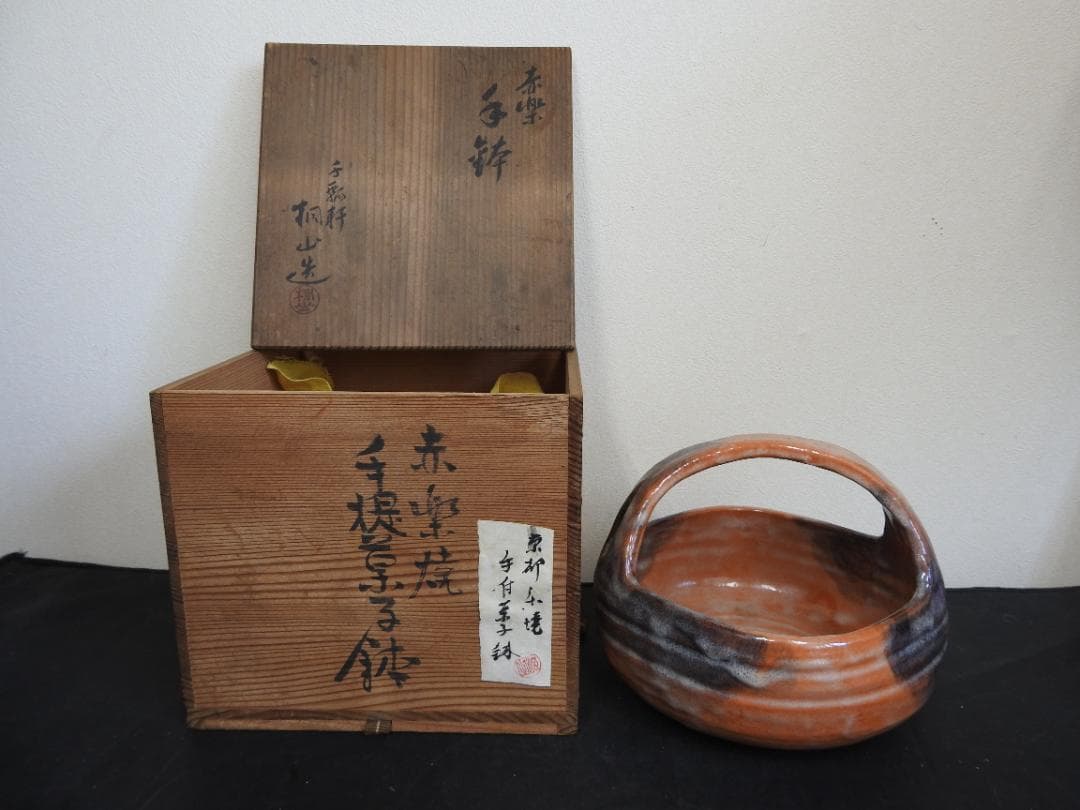 赤楽
手鉢
千瓢軒
桐山造
赤楽焼
手提菓子鉢
京都楽焼
手付菓子鉢